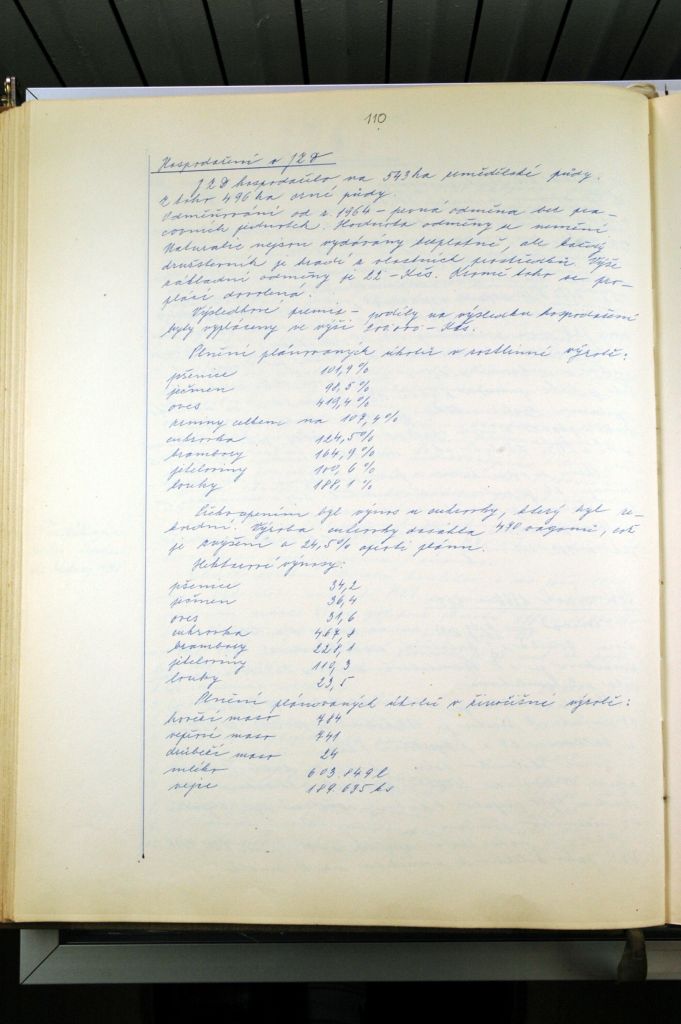 110
Hospodaření v JZD
JZD hospodařilo na 543 ha zemědělské půdy.
Z toho 496 ha orné půdy.
Odměňování od r. 1964 – pevná odměna bez pra-
covních jednotek. Hodnota odměny se nemění.
Naturalie nejsou vydávány bezplatně, ale každý
družstevník je hradí z vlastních prostředků. Výše
základní odměny je 22 – Kčs. Kromě toho se pro-
plácí dovolená.
Výsledkové premie – podíly na výsledku hospodaření
byly vypláceny ve výši – Kčs.
Plnění plánovaných úkolů v rostlinné výrobě:
pšenice 101,9 %
ječmen 98,5 %
oves 419,4 %
zrniny celkem na 107,4 %
cukrovka 124,5 %
brambory 164,9 %
jeteloviny 100,6 %
louky 188,1 %
Překvapením byl výnos u cukrovky, který byl re-
kordní. Výroba cukrovky dosáhla 490 vagonů, což
je zvýšení o 24,5 % oproti plánu.
Hektarové výnosy:
pšenice 34,2
ječmen 36,4
oves 31,6
cukrovka 467,8
brambory 228,1
jeteloviny 110,3
louky 23,5
Plnění plánovaných úkolů v živočišné výrobě:
hovězí maso 484
vepřové maso 741
drůbeží maso 24
mléko 603.849 l
vejce 189.695 ks